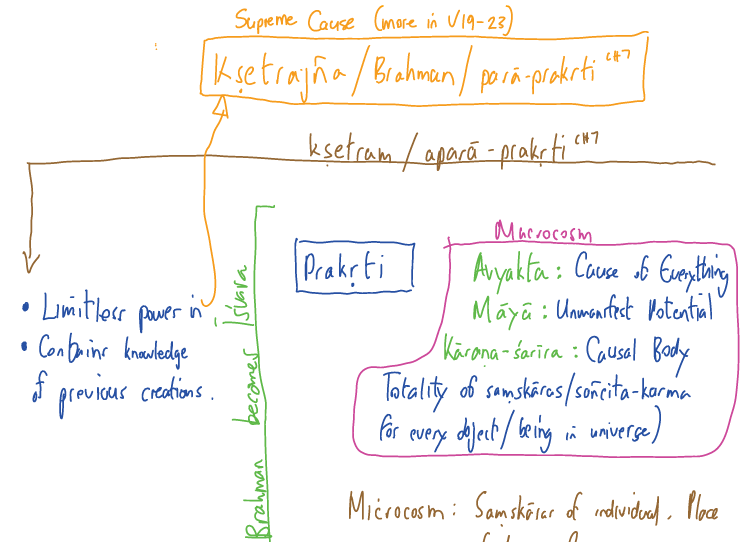 Supreme Cause (more in V19-23)
Kṣetrajña / Brahman / parā-prakrti CH7
kṣetram / aparā-prakṛti CH7
Macrocosm
Prakṛti
Avyakta: Cause of Everything
Māyā: Unmanifest Potential
Kāraṇa-śarīra: Causal Body
Totality of saṃskāras/sañcita-karma
for every object/being in universe)
• Limitless power in
• Contains knowledge
of previous creations.
Brahman becomes Īśvara
Microcosm: Saṃskāras of individual. Place